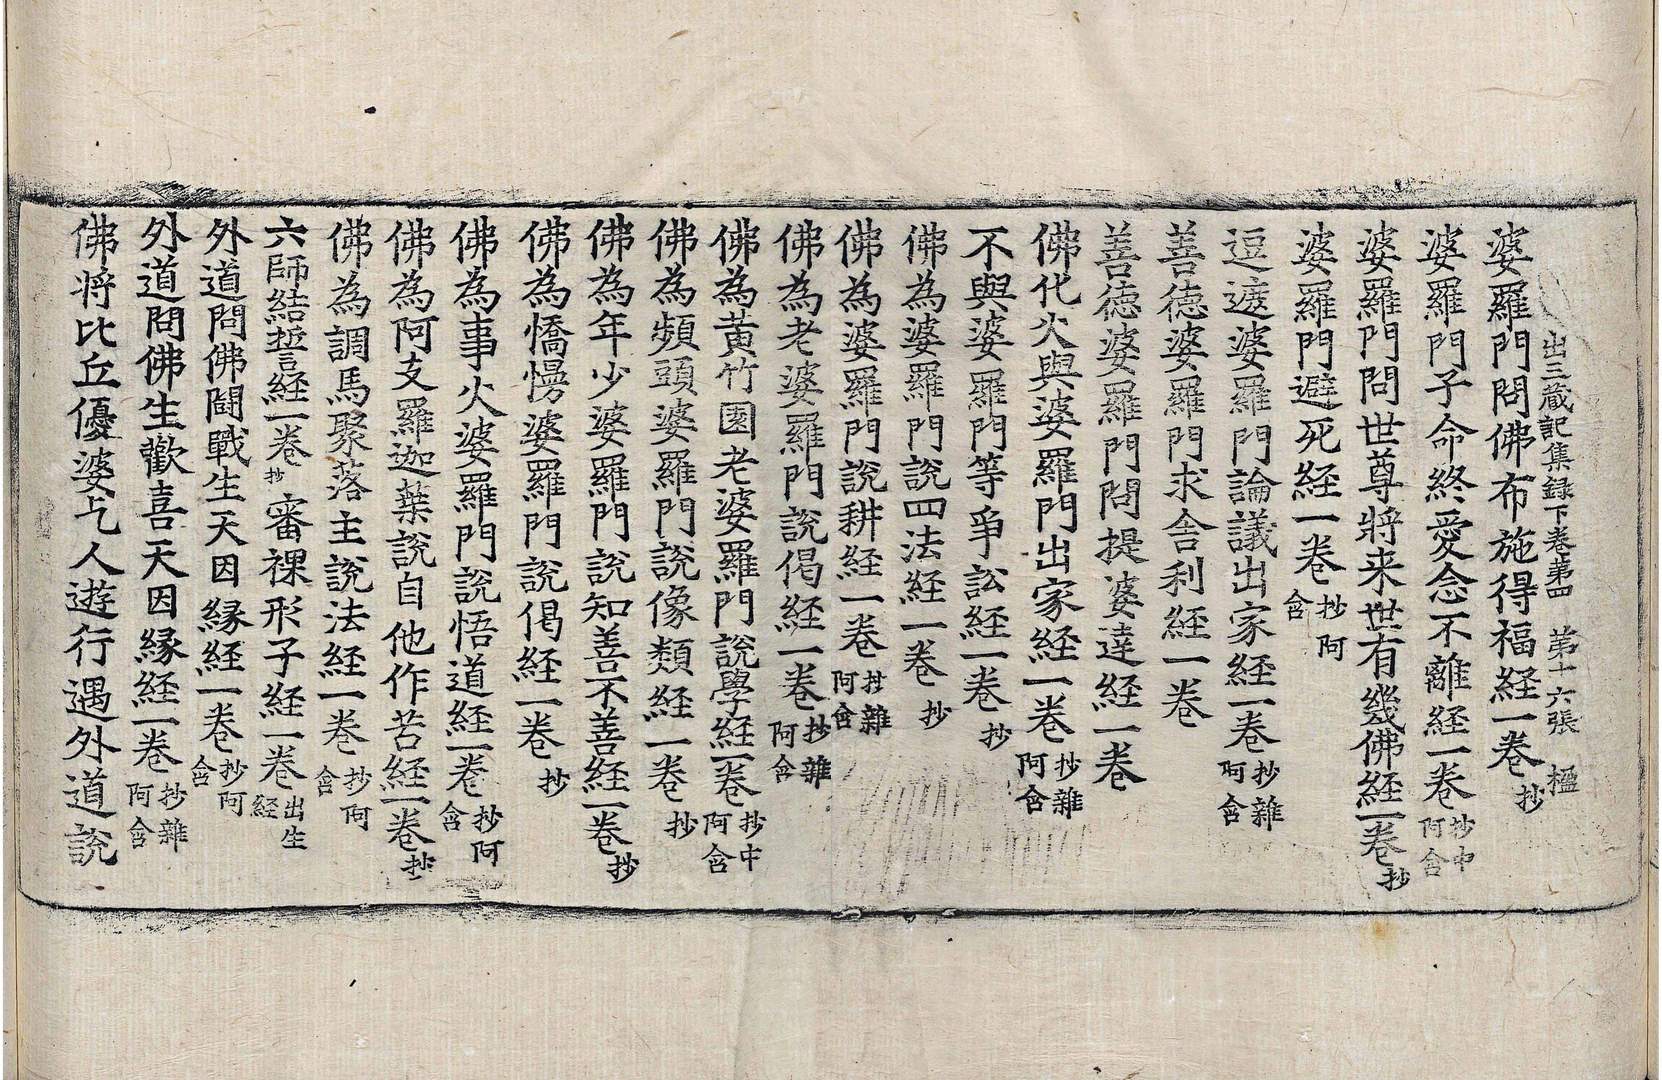 出三蔵記集録下巻第四　第十六張　楹
婆羅門問佛布施得福経一巻 抄
婆羅門子命終愛念不離経一巻 抄中阿含
婆羅門問世尊將来世有幾佛経一巻 抄
婆羅門避死経一巻 抄阿含
逗遮婆羅門論議出家経一巻 抄雜阿含
善徳婆羅門求舎利経一巻
善徳婆羅門問提婆達経一巻
佛化火與婆羅門出家経一巻 抄雜阿含
不與婆羅門等爭訟経一巻 抄
佛為婆羅門説四法経一巻 抄
佛為婆羅門説耕経一巻 抄雜阿含
佛為老婆羅門説偈経一巻 抄雜阿含
佛為黄竹園老婆羅門説學経一巻 抄中阿含
佛為頻頭婆羅門説像類経一巻 抄
佛為年少婆羅門説知善不善経一巻 抄
佛為憍慢婆羅門説偈経一巻 抄
佛為事火婆羅門説悟道経一巻 抄阿含
佛為阿支羅迦葉説自他作苦経一巻 抄
佛為調馬聚落主説法経一巻 抄阿含
六師結誓経一巻 抄 審裸形子経一巻 出生経
外道問佛鬪戰生天因縁経一巻 抄阿含
外道問佛生歡喜天因縁経一巻 抄雜阿含
佛将比丘優婆乞人遊行遇外道説